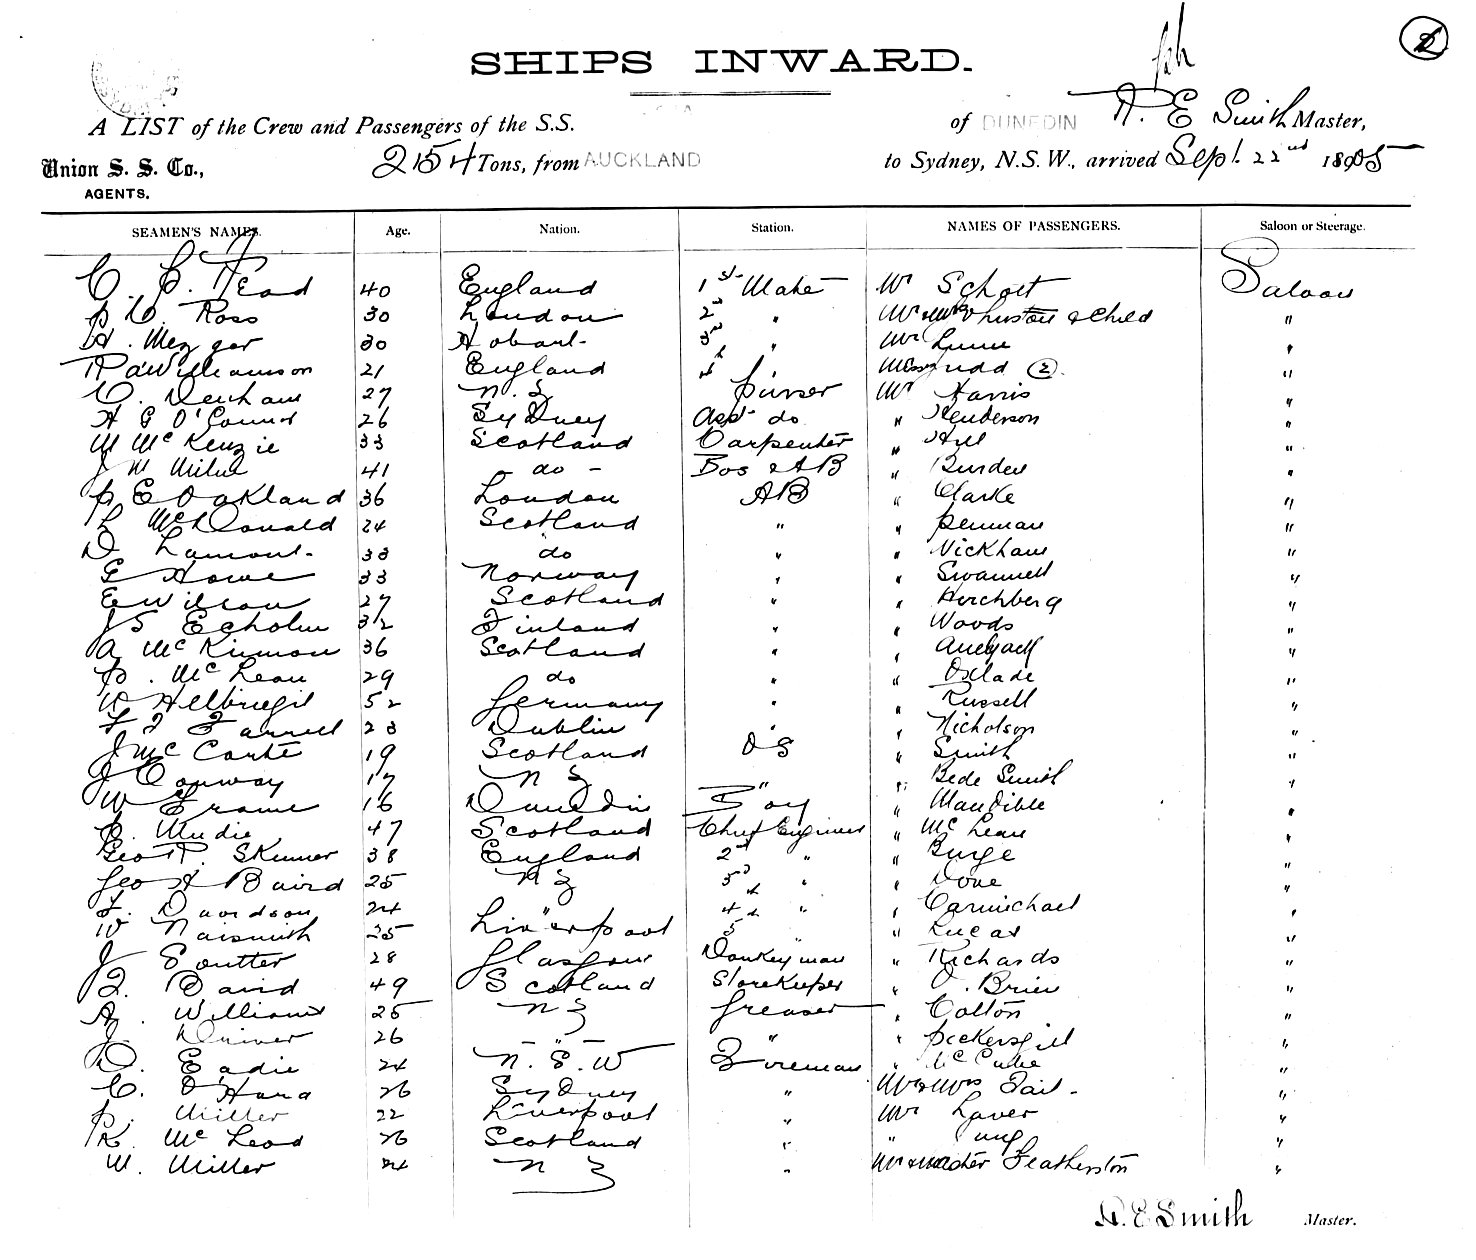 SHIPS INWARD.
A LIST of the Crew and Passengers of the S.S. of DUNEDIN E Smith Master,
Union S. S. Co., 254 Tons, from AUCKLAND to Sydney, N.S.W., arrived Sept. 22nd
AGENTS.
SEAMEN'S NAMES. Age. Nation. Station. NAMES OF PASSENGERS. Saloon or Steerage.
C. C. Head 40 England 1st Mate Mr Schott Saloon
Ross 30 London 2nd " Child "
H. Mezger 30 Hobart 3rd " Mr "
Williamson 21 England (2) "
C. Denham 27 N.Z Purser Mr Harris "
H G O'Connor 26 Sydney Asst do " Henderson "
M McKenzie 33 Scotland Carpenter " Hill "
J M Milne 41 - do - Bos & AB " Burden "
E Oakland 36 London AB " Clarke "
L McDonald 24 Scotland " " Penman "
D Lamont 33 do " " Wickham "
G Howe 33 Norway " " Swannell "
E Wilson 27 Scotland " " Hirchberg "
J S Echolm 32 Finland " " Woods "
A McKinnon 36 Scotland " " "
McLean 29 do " " Oxlade "
W Helbriegil 52 Germany " " Russell "
Farrell 23 Dublin " " Nicholson "
J McCarte 19 Scotland OS " Smith "
J Conway 17 N Z " " Bede Smith "
W Frame 16 Dunedin Boy " Mandible "
Mudie 47 Scotland Chief Engineer " McLean "
Geo R. Skinner 38 England 2nd " " Burge "
Geo A Baird 25 N Z 3rd " " Dove "
Davidson 24 " 4th " " Carmichael "
W Naismith 25 Liverpool 5 " " Lucas "
J Soutter 28 Glasgow Donkeyman " Richards "
Baird 49 Scotland Storekeeper " O'Brien "
A. Williams 25 N Z Greaser " Colton "
J. Driver 26 " " " Pickersgill "
D. Eadie 24 N.S.W Fireman " McCabe "
C. O'Hara 26 Sydney " Mr & Mrs Tait "
Miller 22 Liverpool " Mr Laver "
K. McLeod 26 Scotland " " "
W. Miller 24 N Z " Featherston "
E Smith Master.